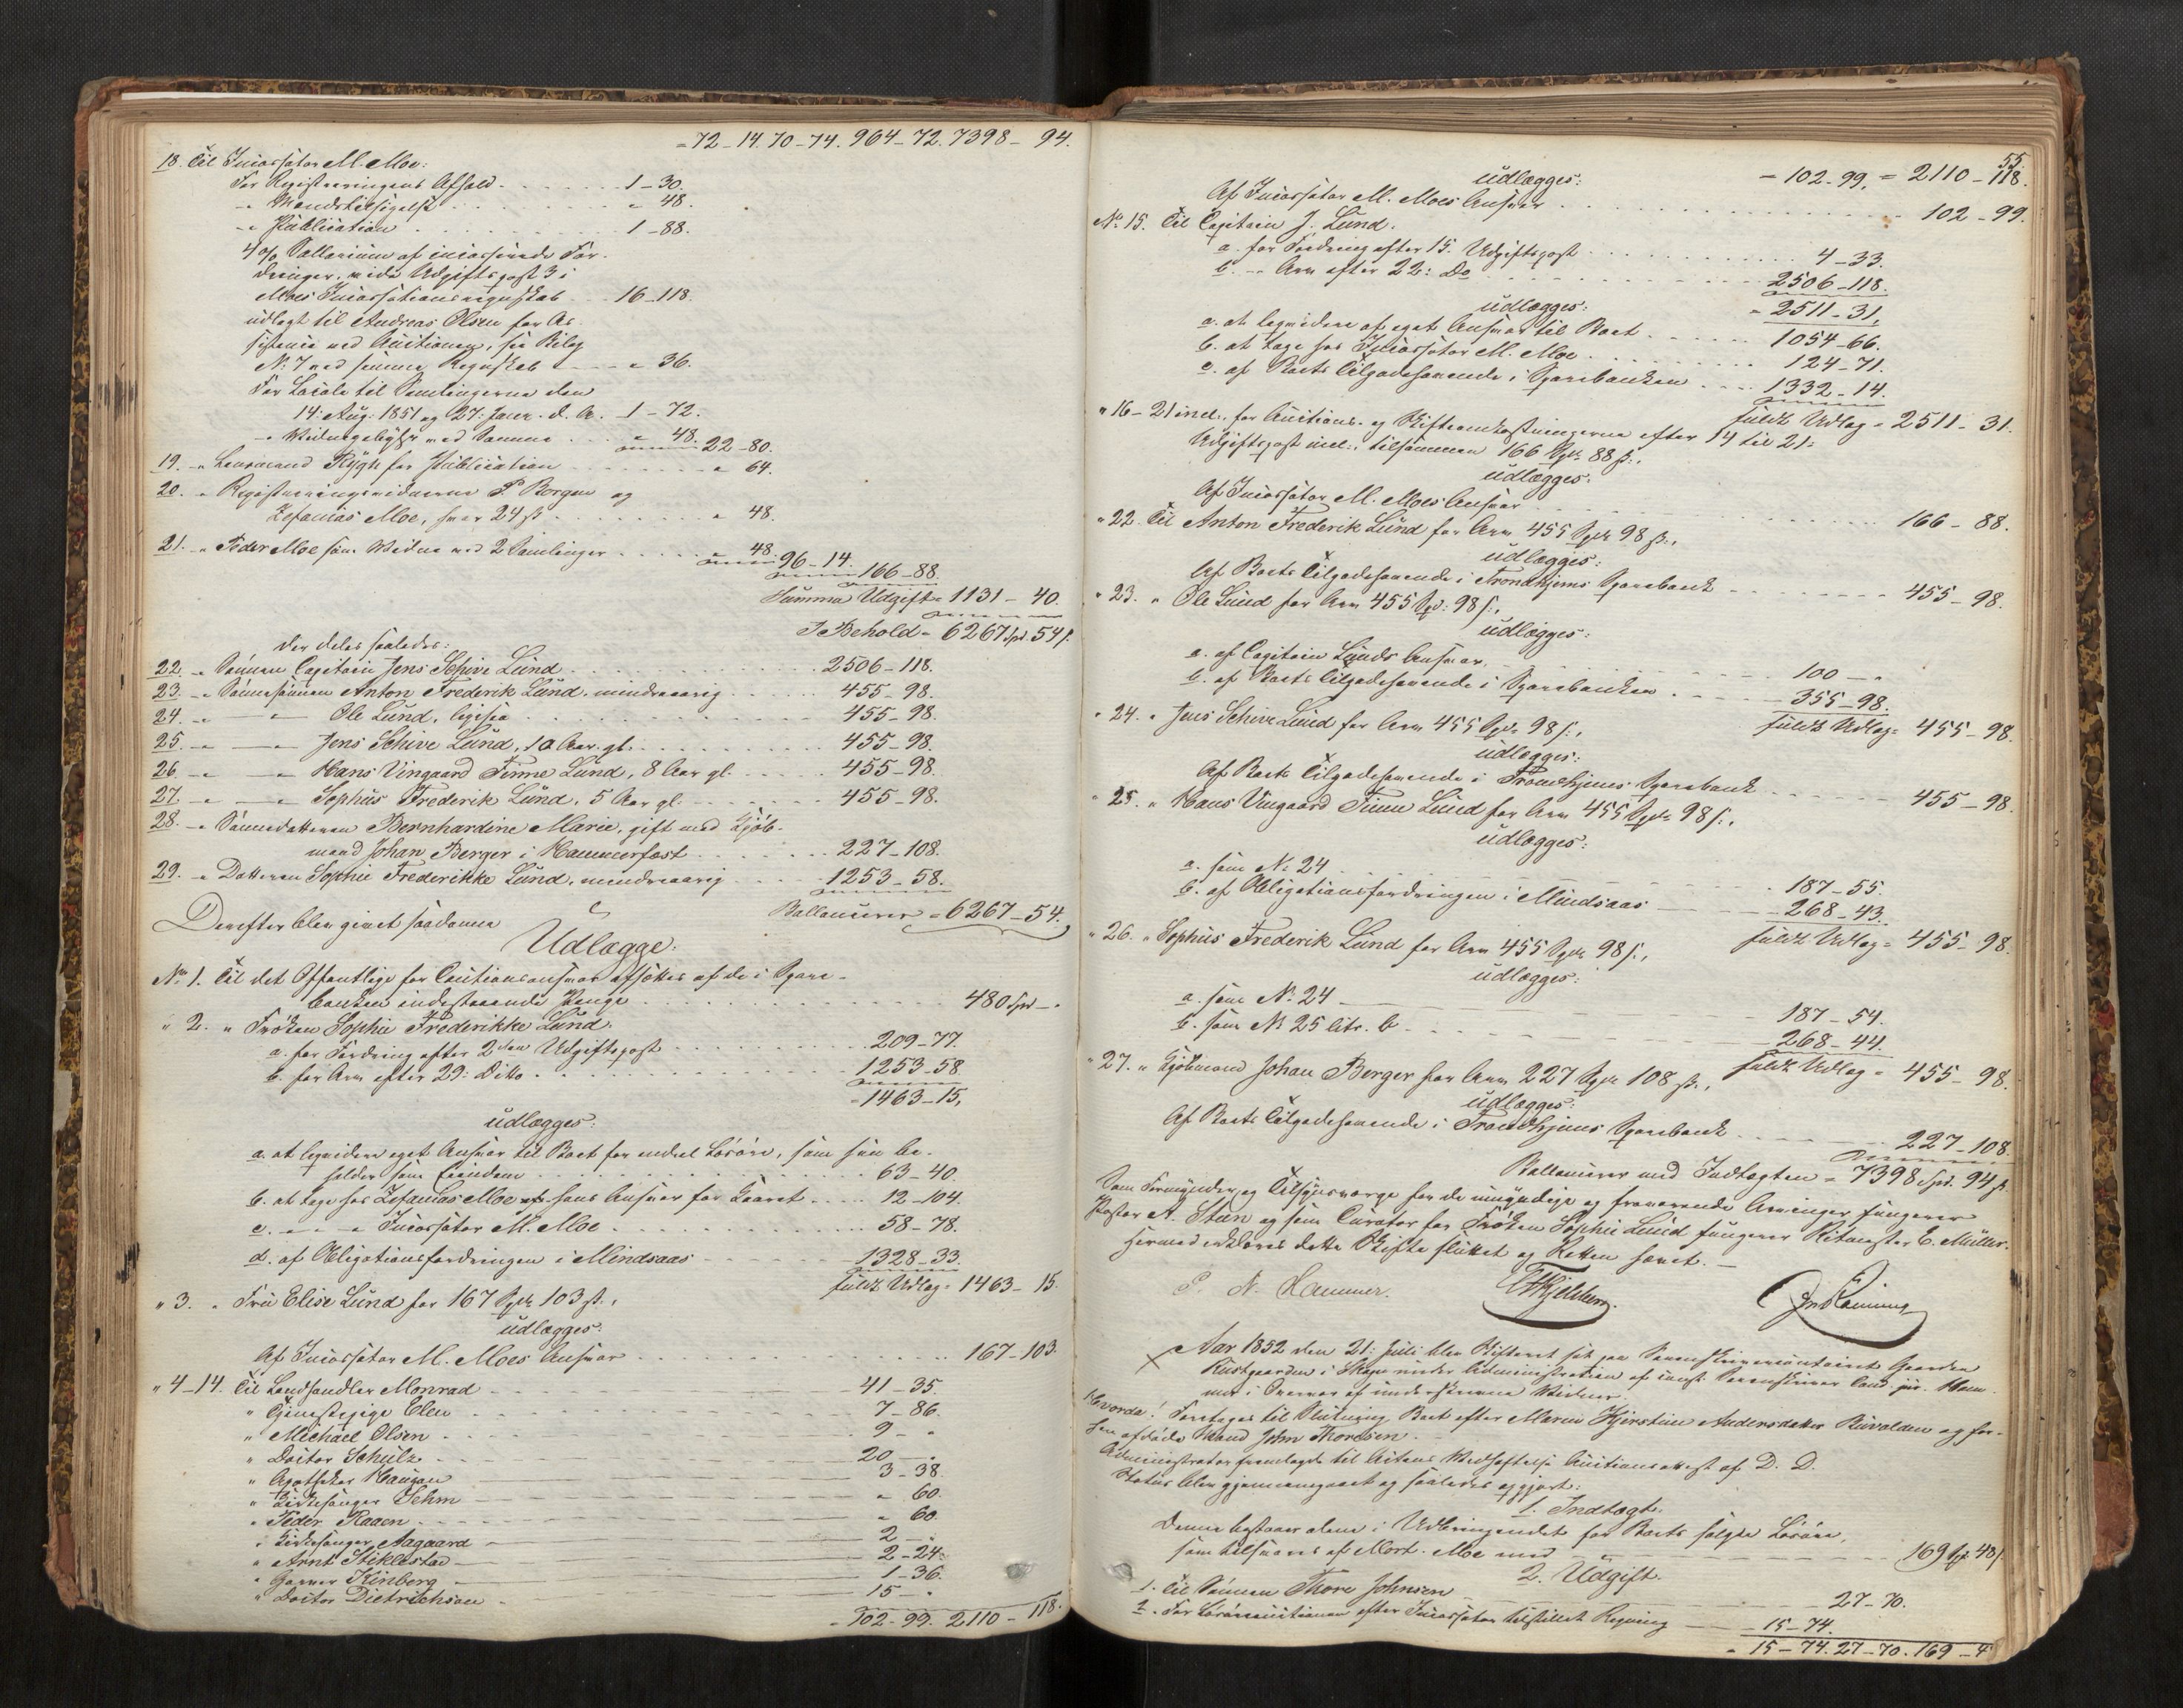 = 72-14. 70-74. 964-72. 7398-94.
18. Til Incassator M. Moe:
For Registreringens Afhold . . . 1-30.
-" Mændstilsigelse . . . "-48.
-" Publication . . . 1-88.
4 % Sallarium af incasserede For-
dringer, vide Udgiftspost 3 i
Moes Incassationsregnskab . . . 16-118.
udlagt til Andreas Olsen for As-
sistence ved Auctionen, see Bilag
No 7 ved samme Regnskab . . . "-36.
For Locale til Samlingerne den
14: Aug: 1851 og 27: Janr. d. A. 1-72.
-" Vidnegebyhr ved Samme . . . "-48. 22-80.
19. -" Lensmand Rygh for Publication . . . "-64.
20. -" Registreringsvidnerne P Borgen og
Zefanias Moe, hver 24 ß . . . "-48.
21. -" Peder Moe som Vidne ved 2 Samlinger . . . "-48. 96-14.
166-88.
Summa Udgift = 1131-40.
I Behold = 6267 Spd. 54 ß.
der deles saaledes:
22. -" Sønnen Capitain Jens Schive Lund . . . 2506-118.
23. -" Sønnesønnen Anton Frederik Lund, mindreaarig . . . 455-98.
24. -" —"— Ole Lund, ligesaa . . . 455-98.
25. -" —"— Jens Schive Lund, 10 Aar gl. . . . 455-98.
26. -" —"— Hans Vingaard Finne Lund, 8 Aar gl. . . . 455-98.
27. -" —"— Sophus Frederik Lund, 5 Aar gl. . . . 455-98.
28. -" Sønnedatteren Bernhardine Marie, gift med Kjøb-
mand Johan Berger i Hammerfest . . . 227-108.
29. -" Datteren Sophie Frederikke Lund, mindreaarig . . . 1253-58.
Ballancerer = 6267-54.
Derefter blev givet saadanne
Udlægge:
No 1. Til det Offentlige for Cautionsansvar afsættes af de i Spare-
banken indestaaende Penge . . . 480 Spd -"
" 2. " Frøken Sophie Frederikke Lund.
a. for Fordring efter 2den Udgiftspost . . . 209-77.
b. for Arv efter 29: Ditto . . . 1253-58
= 1463-15,
udlægges:
a. at liqvidere eget Ansvar til Boet for endeel Løsøre, som hun be-
holder som Eiendom . . . 63-40.
b. at tage hos Zefanias Moe af hans Ansvar for Gaard . . . 12-104.
c. -"- -" Incassator M. Moe . . . 58-78.
d. af Obligationsfordringen i Mindsaas . . . 1328-33.
fuldt Udlag = 1463-15.
" 3. " Frue Elise Lund for 167 Spd 103 ß.,
udlægges:
Af Incassator M. Moes Ansvar . . . 167-103
" 4-14. Til Landhandler Monrad . . . 41-35.
" Tjenestepige Elen . . . 7-86.
" Michael Olsen . . . 9-"
" Doctor Schulz . . . 20-"
" Apotheker Hauzan . . . 3-38.
" Kirkesanger Sehm . . . "-60.
" Peder Kaaen . . . "-60.
" Kirkesanger Aagaard . . . 2-"
" Arnt Stiklestad . . . 2-24.
" Garver Kinberg . . . 1-36.
" Doctor Dietrichson . . . 15-"
= 102-99. 2110-118.
55.
= 102-99. = 2110-118.
udlægges:
Af Incassator M. Moes Ansvar . . . 102-99.
No 15. Til Capitain J. Lund.
a. for Fordring efter 15. Udgiftspost . . . 4-33.
b. -" Arv efter 22: Do . . . 2506-118.
= 2511-31,
udlægges:
a. at liqvidere af eget Ansvar til Boet . . . 1054-66.
b. at tage hos Incassator M. Moe . . . 124-71.
c. af Boets Tilgodehavende i Sparebanken . . . 1332-14.
fuldt Udlag = 2511-31.
" 16-21 incl. for Auctions- og Skifteomkostningerne efter 14 til 21:
Udgiftspost incl., tilsammen 166 Spd 88 ß.,
udlægges:
Af Incassator M. Moes Ansvar . . . 166-88.
" 22. Til Anton Frederik Lund for Arv 455 Spd 98 ß.,
udlægges:
Af Boets Tilgodehavende i Trondhjems Sparebank . . . 455-98.
" 23. " Ole Lund for Arv 455 Spd: 98 ß.,
udlægges:
a. af Capitain Lunds Ansvar . . . 100-"
b. af Boets Tilgodehavende i Sparebanken . . . 355-98.
fuldt Udlag = 455-98.
" 24. " Jens Schive Lund for Arv 455 Spd 98 ß.,
udlægges:
Af Boets Tilgodehavende i Trondhjems Sparebank . . . 455-98.
" 25. " Hans Vingaard Finne Lund for Arv 455 Spd 98 ß.,
udlægges:
a. som No 24 . . . 187-55.
b. af Obligationsfordringen i Mindsaas . . . 268-43.
fuldt Udlag = 455-98.
" 26. " Sophus Frederik Lund for Arv 455 Spd 98 ß.,
udlægges:
a. som No 24 . . . 187-54.
b. som No 25 litr. b . . . 268-44.
fuldt Udlag = 455-98.
" 27. " Kjøbmand Johan Berger for Arv 227 Spd 108 ß.,
udlægges:
Af Boets Tilgodehavende i Trondhjems Sparebank . . . 227-108
Ballancerer med Indtægten = 7398 Spd. 94 ß
Som Formynder og Tilsynsværge for de umyndige og fraværende Arvinger fungerer
Pastor A. Steen og som Curator for Frøken Sophie Lund fungerer Ritmester C. Müller.
Hermed erklæres dette Skifte sluttet og Retten hævet. —
P. N. Hammer.
× Aar 1852 den 21: Juli blev Skifteret sat paa Sorenskrivercontoiret Gaarden
Rustgaarden i Skogn under Administration af const. Sorenskriver Cand. jur. Ham-
mer i Overvær af underskrevne Vidner.
Hvorda! Foretages til Slutning Boet efter Maren Kjerstine Andersdatter Buvolden og for-
hen afdøde Mand John Thoresen.
Administrator fremlagde til Actens Vedheftelse Auctionsattest af D. D.
Status blev gjennemgaaet og saaledes opgjort:
1. Indtægt.
Denne bestaaer alene i Udbringendet for Boets solgte Løsøre,
som tilsvares af Mort. Moe med . . . 169 Spd 48 ß
2. Udgift.
1. Til Sønnen Thore Johnsen . . . 27-70.
2. For Løsøreauctionen efter Incassator tilstillet Regning . . . 15-74.
= 15-74. 27-70. 169-4